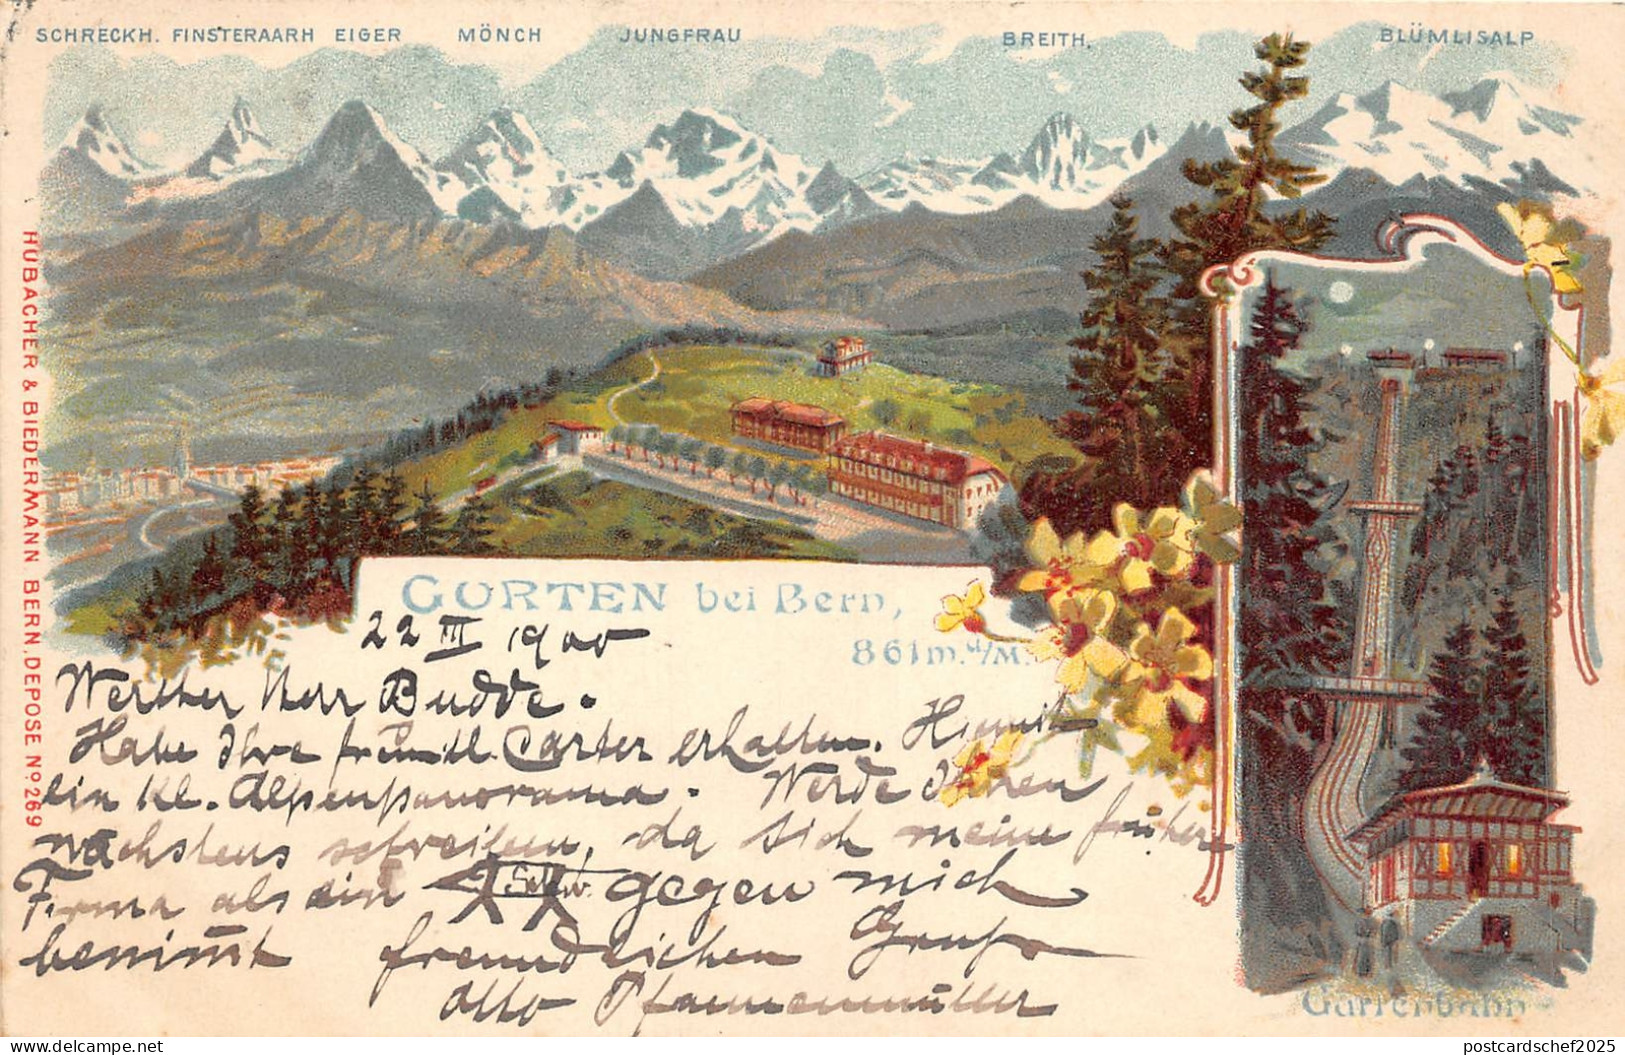 SCHRECKH. FINSTERAARH EIGER MÖNCH JUNGFRAU BREITH. BLÜMLISALP
HUBACHER & BIEDERMANN BERN, DEPOSE No. 269
GURTEN bei Bern,
861 m. ü/M.
22 III 1900
Werther Herr Budde.
Habe Ihre freundl. Carter erhalten. Hiemit
ein kl. Alpenpanorama. Werde Ihnen
nächstens schreiben, da sich meine frühere
Firma als ein gegen mich
benimmt freundlichen Gruss
Otto Pfannenmüller
Gurtenbahn
delcampe.net
postcardschef2025